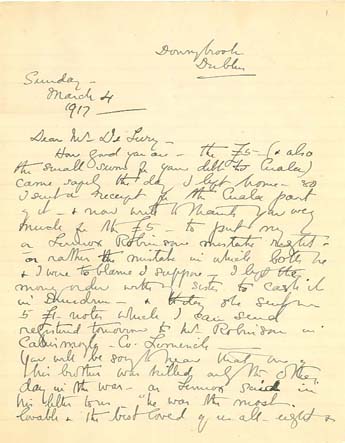 1
Donnybrook
Dublin
Sunday -
March 4
1917
Dear Mr De Lury
How good you are - the £5 - (& also
the small sum for your debt to Cuala)
came safely the day I left home - so
I sent a receipt for the Cuala part
of it - & now write to thank you very
much for the £5 - to put my
or Lennox Robinsons mistake right -
or rather the mistake in which both he
& I were to blame I suppose - I left the
money order with my sister to cash it
in Dundrum - & today she sent me
5 £1 - notes which I can send
registered tomorrow to Mr Robinson in
Co. Limerick
You will be sorry to hear that one of
his brothers was killed only the other
day in the war - as Lennox said in
his letter to us "he was the most
lovable & the best loved of us all -